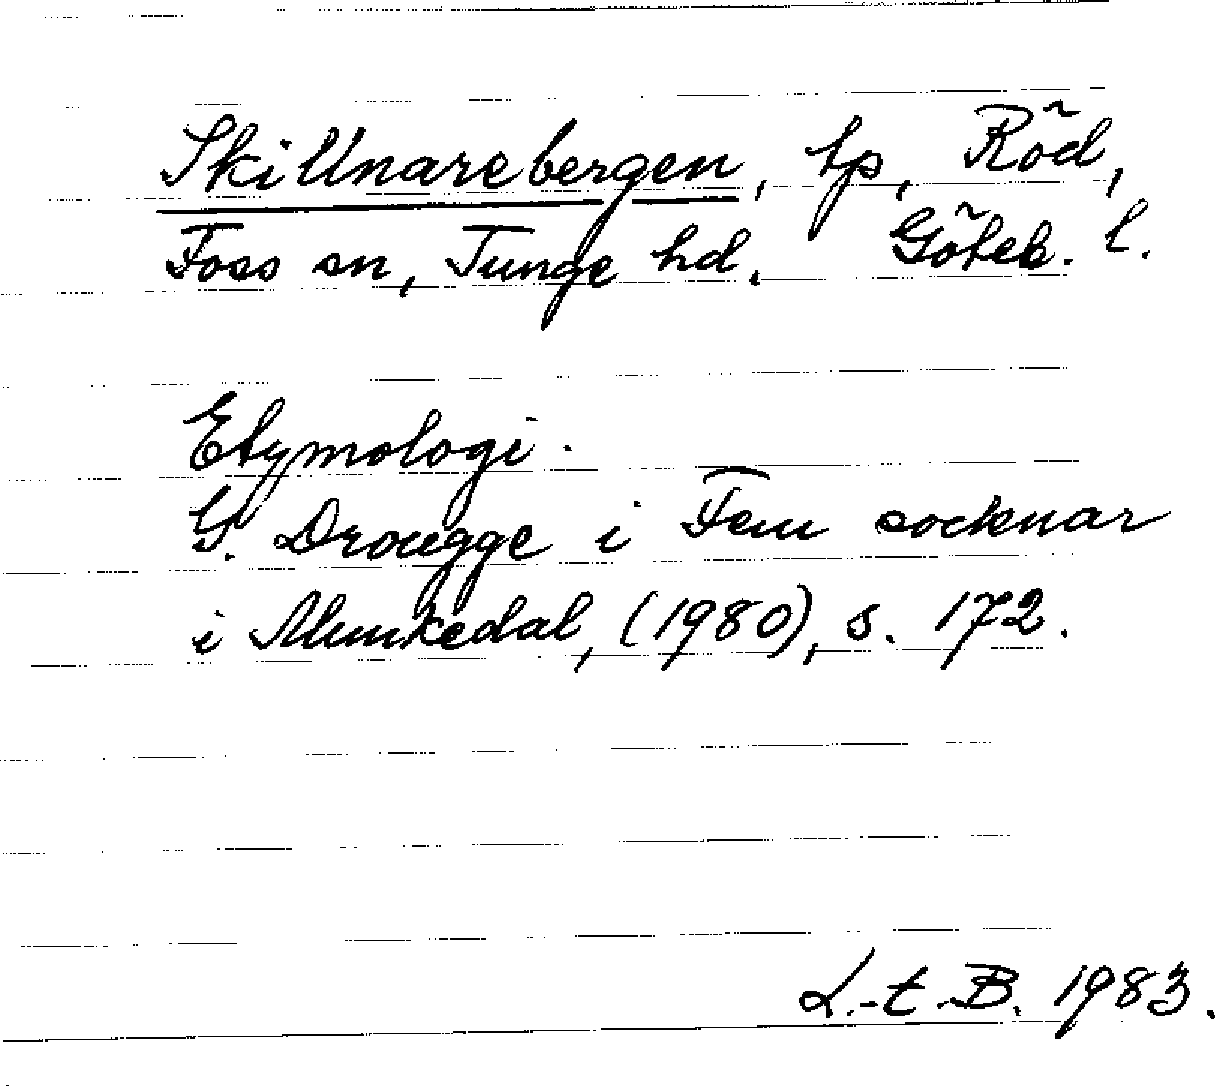 Skillnarebergen, tp, Röd,
Foss sn, Tunge hd. Göteb. l.
Etymologi.
G. Drougge i Fem socknar
i Munkedal, (1980), s. 172.
L.-t.-B. 1983.